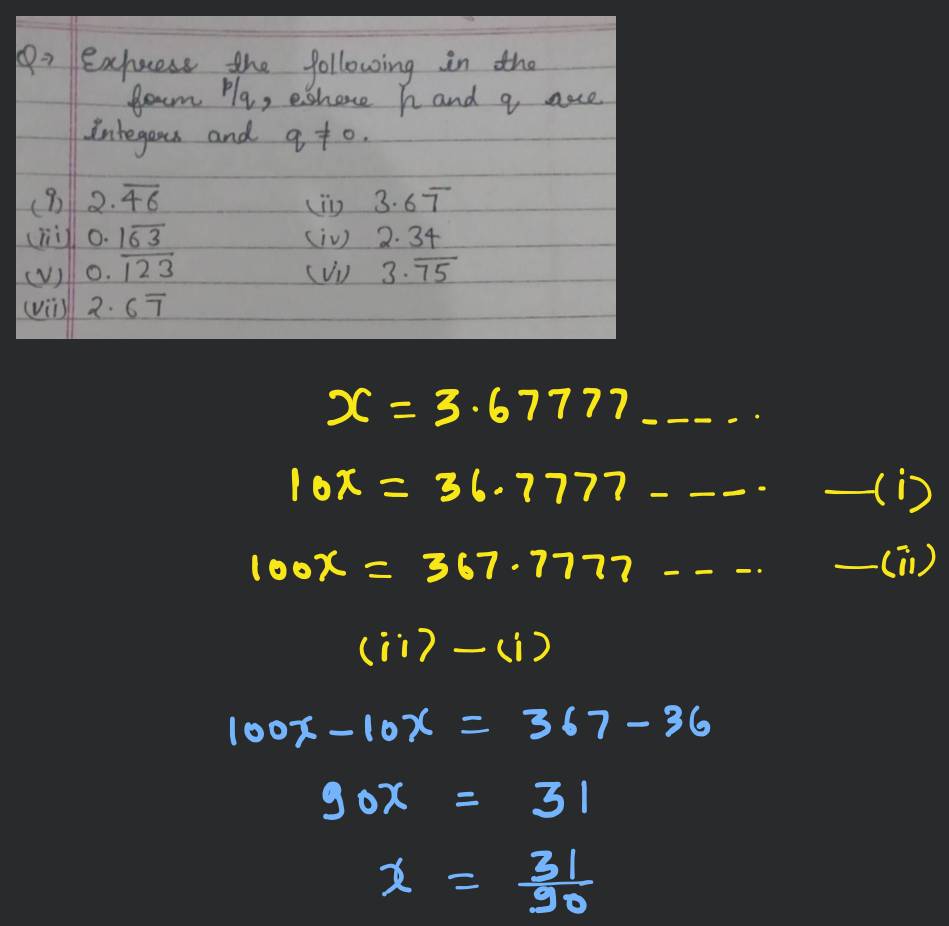 Q→ Express the following in the
form p/q, where p and q are
integers and q ≠ 0.
(i) 2.4̅6̅ (ii) 3.67̅
(iii) 0.16̅3̅ (iv) 2.34
(v) 0.1̅2̅3̅ (vi) 3.7̅5̅
(vii) 2.67̅
x = 3.67777-----.
10x = 36.7777 - ---. —(i)
100x = 367.7777 ----. —(ii)
(ii) — (i)
100x - 10x = 367 - 36
90x = 31
x = 31/90